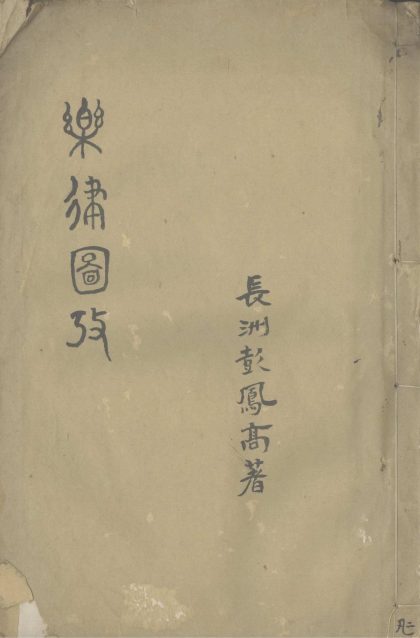 長洲彭鳳高著
樂律圖攷